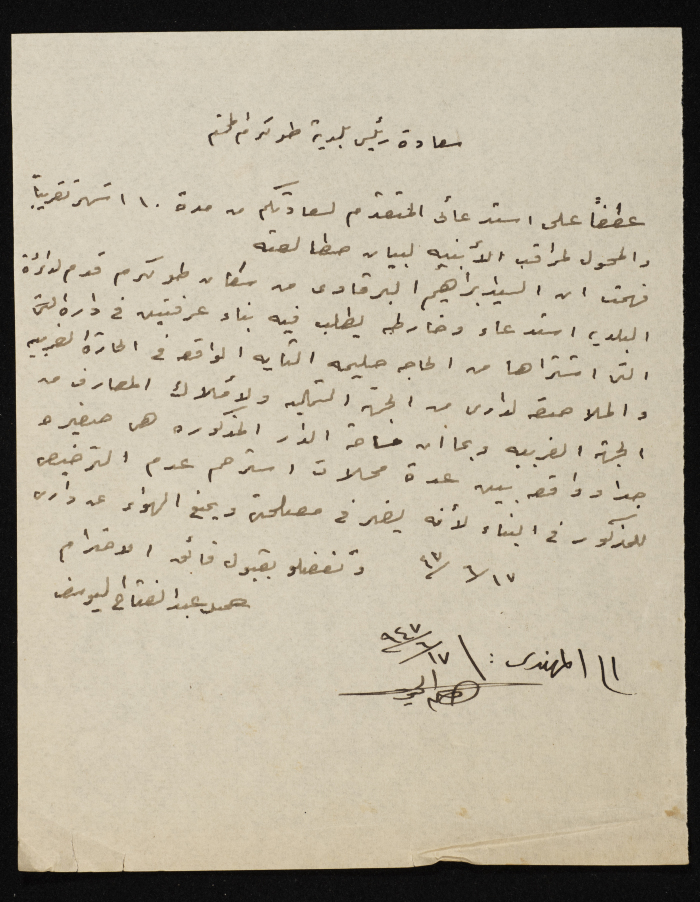 سعادة رئيس بلدية طولكرم المحترم
عطفاً على استدعائي المتقدم لسعادتكم من مدة ١٠ اشهر تقريباً
والمحول لمراقب الأبنيه لبيان مطالعته
فهمت ان السيد ابراهيم البرقاوي من سكان طولكرم قدم لدائرة
البلديه استدعاء وخارطه يطلب فيه بناء غرفتين في داره التي
التي اشتراها من الحاجه حليمه الواقعه في الحارة الغربيه
والملاصقه لداري من الجهة الشماليه ولأملاك المصارف من
الجهة الغربيه وبما أن مساحة الدار المذكوره هي صغيره
جدا وواقعه بين عدة محلات استرحم عدم الترخيص
للمذكور في البناء لأنه يضر في مصلحتي ويمنع الهواء عن داري
وتفضلو بقبول فائق الاحترام
١٧/٦/٤٧
عبد الفتاح اليوسف
المهندس :
١٧/٦/٩٤٧